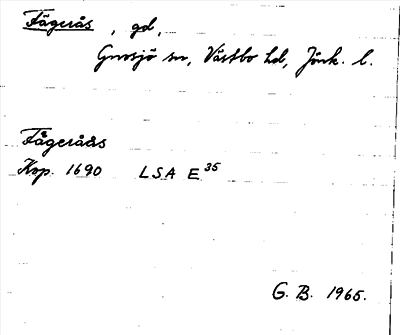 Fägerås, gd,
Gnosjö sn, Västbo hd, Jönk. l.
Fågeråås
Kop. 1690 LSA E 35
G. B. 1965.